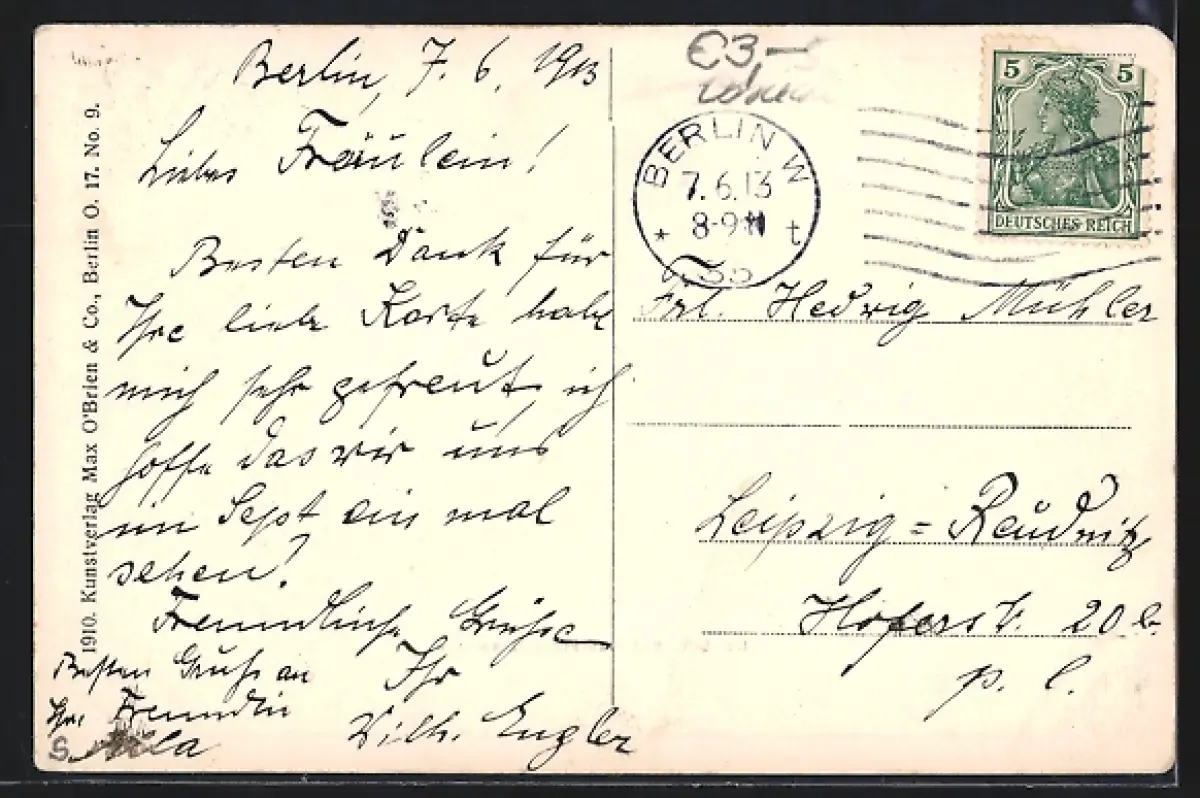 1910. Kunstverlag Max O'Brien & Co., Berlin O. 17. No. 9.
Berlin, 7. 6. 1913
Liebes Fräulein!
Besten Dank für
Ihre liebe Karte habe
mich sehr gefreut, ich
hoffe das wir uns
im Sept ein mal
sehen!
Freundliche Grüße
Ihr
Wilh. Engler
Besten Gruß an
Ihre Freundin
€3,-
BERLIN W
7.6.13
8-9 N
* t
35
5 5
DEUTSCHES REICH
Frl. Hedwig Mühler
Leipzig = Reudnitz
Hoferstr. 20 b.
p. l.